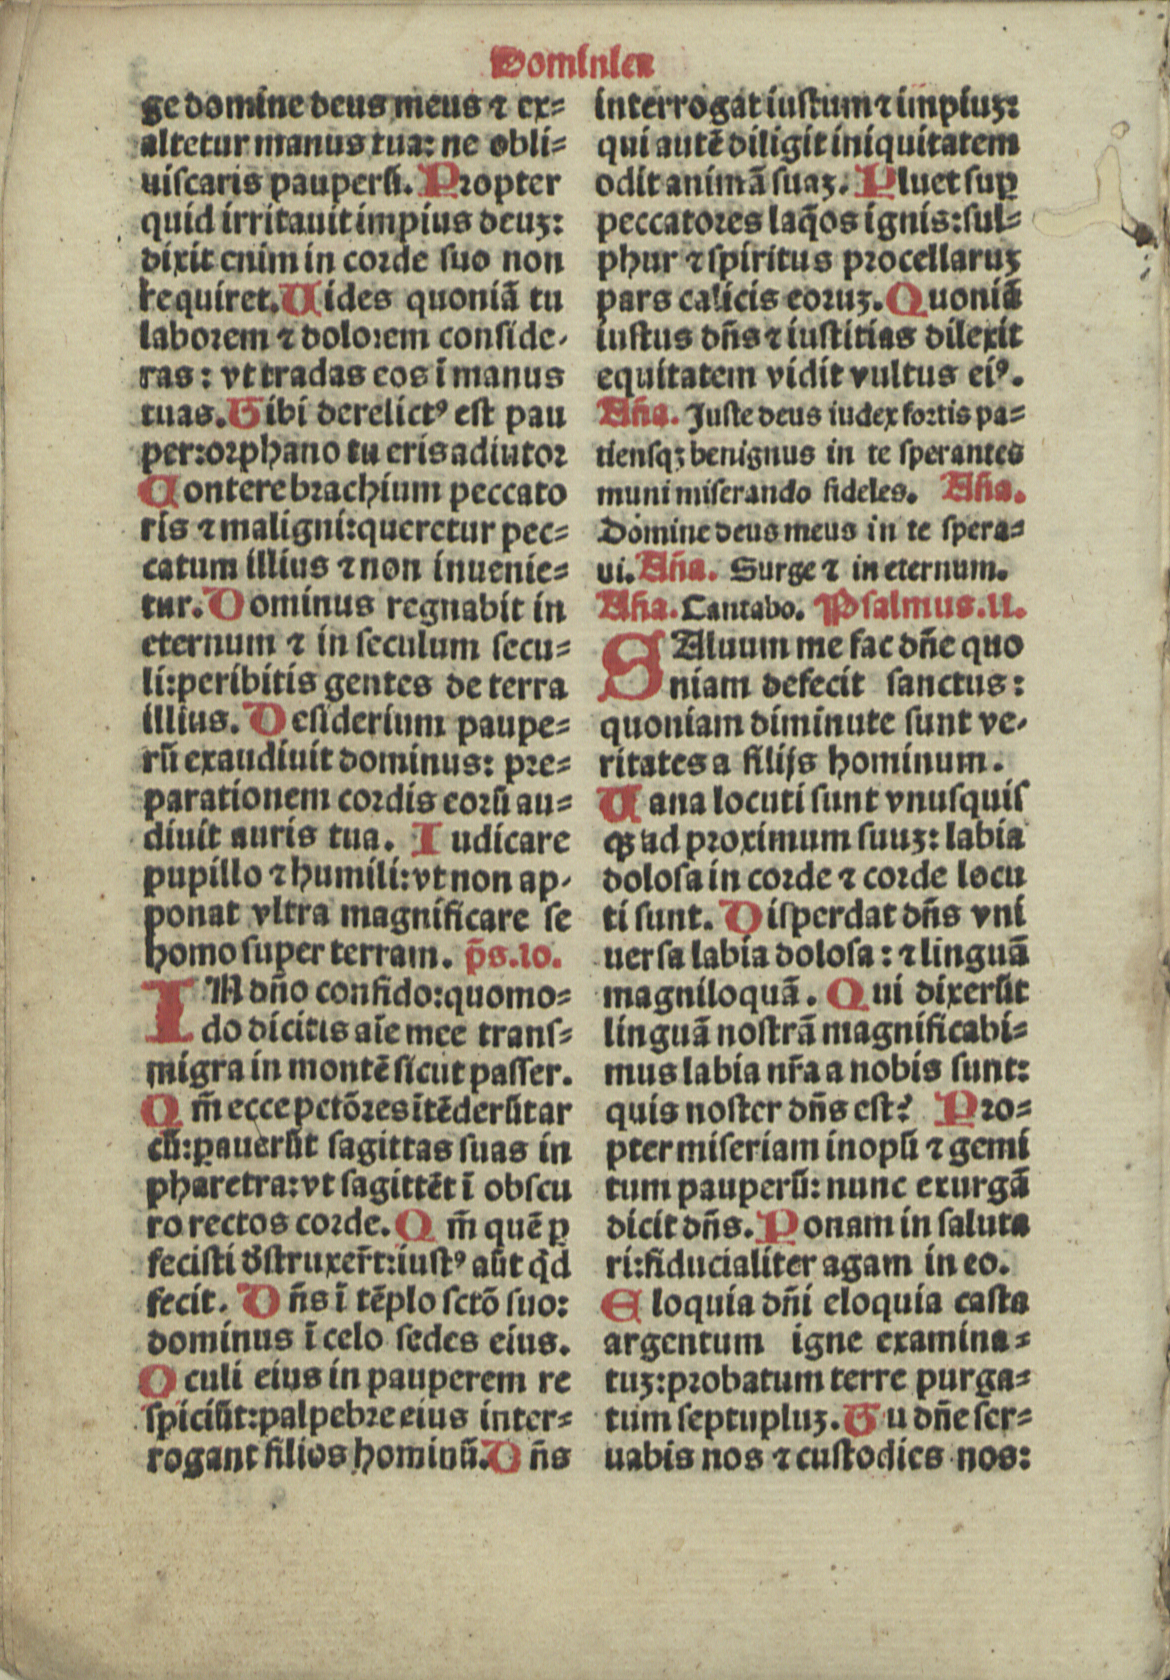 Dominica
ge domine deus meus ⁊ ex=
altetur manus tua: ne obli=
uiscaris pauperū. Propter
quid irritauit impius deuꝫ:
dixit enim in corde suo non
requiret. Uides quoniā tu
laborem ⁊ dolorem conside-
ras: vt tradas eos ī manus
tuas. Tibi derelictꝰ est pau
per: orphano tu eris adiutor
Contere brachium peccato
ris ⁊ maligni: queretur pec=
catum illius ⁊ non inuenie=
tur. Dominus regnabit in
eternum ⁊ in seculum secu=
li: peribitis gentes de terra
illius. Desiderium paupe=
rū exaudiuit dominus: pre=
parationem cordis eorū au=
diuit auris tua. Iudicare
pupillo ⁊ humili: vt non ap-
ponat vltra magnificare se
homo super terram. p̄s.10.
IN dño confido: quomo=
do dicitis aīe mee trans=
migra in montē sicut passer.
Qm̄ ecce pctōres ītēderūt ar
cū: ꝑauerūt sagittas suas in
pharetra: vt sagittēt ī obscu
ro rectos corde. Qm̄ quē ꝑ
fecisti d̄struxer̄t: iustꝰ aūt qͥd
fecit. Dn̄s ī tēplo sctō suo:
dominus ī celo sedes eius.
Oculi eius in pauperem re
spiciūt: palpebre eius inter=
rogant filios hominū. Dn̄s
interrogat iustum ⁊ impiuꝫ:
qui autē diligit iniquitatem
odit animā suaꝫ. Pluet suꝑ
peccatores laq̄os ignis: sul=
phur ⁊ spiritus procellaruꝫ
pars calicis eoruꝫ. Quoniā
iustus dn̄s ⁊ iustitias dilexit
equitatem vidit vultus eiꝰ.
Añа. Juste deus iudex fortis pa=
tiensqꝫ benignus in te sperantes
muni miserando fideles. Aña.
Domine deus meus in te spera=
ui. Aña. Surge ⁊ in eternum.
Aña. Cantabo. Psalmus.11.
SAluum me fac dn̄e quo
niam defecit sanctus:
quoniam diminute sunt ve-
ritates a filijs hominum.
Uana locuti sunt vnusquis
qꝫ ad proximum suuꝫ: labia
dolosa in corde ⁊ corde locu
ti sunt. Disperdat dn̄s vni
uersa labia dolosa: ⁊ linguā
magniloquā. Qui dixerūt
linguā nostrā magnificabi=
mus labia nr̄a a nobis sunt:
quis noster dn̄s est? Pro=
pter miseriam inopū ⁊ gemi
tum pauperū: nunc exurgā
dicit dn̄s. Ponam in saluta
ri: fiducialiter agam in eo.
Eloquia dn̄i eloquia casta
argentum igne examina=
tuꝫ: probatum terre purga=
tum septupluꝫ. Tu dn̄e ser=
uabis nos ⁊ custodies nos: